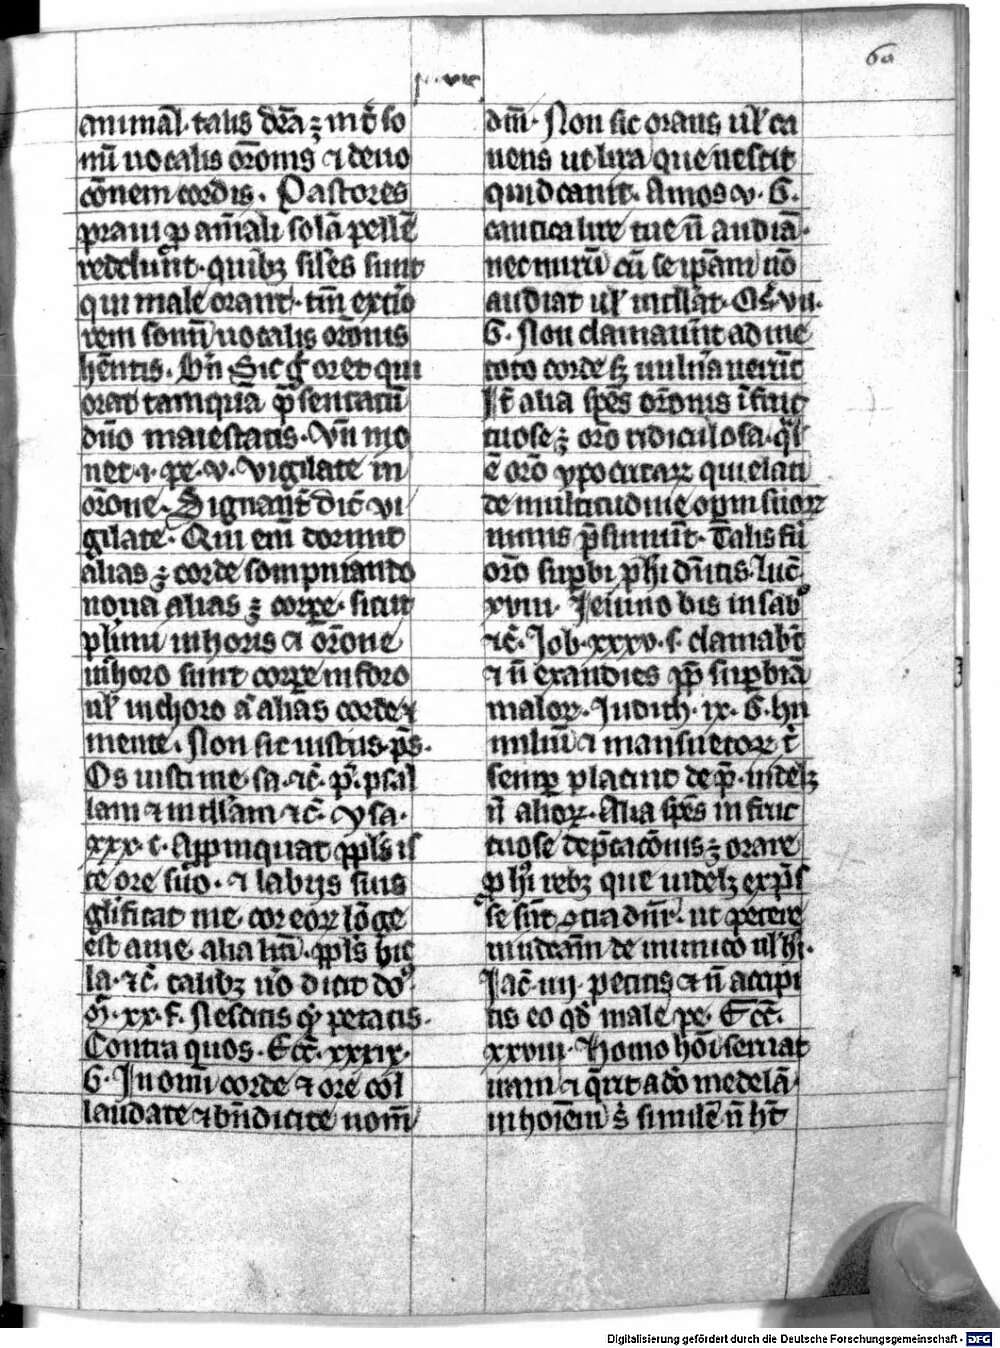 60
animal talis dr̄a ⁊ int̄ so
nū uocalis or̄onis ⁊ deuo
c̄onem cordis. Pastores
praui ꝓ am̄ali solā pellē
reddunt. quibꝫ siles sunt
qui male orant. tm̄ exteō
rem sonū uocalis or̄onis
hēntis. Bn̄ Sic g̊ oret qui
orat tamquā p̄sentatū
dn̄o maiestatis. Vn̄ mo
net .i. pe. v. Vigilate in
or̄one. Signant̄ dic̄ vi
gilate. Qui em̄ dormit
alias ē corde sompniando
noua alias ē corpe. sicut
plīmi in horis ⁊ or̄one
in horo sunt corpe in foro
ul̄ in choro ā alias corde ⁊
mente. Non sic iustus. ps̄.
Os iusti me. sa. ⁊c̄. p̄. psal
lam ⁊ intll̄am ⁊c̄. ysa.
xxx. c. Appinquat ppl̄s is
te ore suo. ⁊ labijs suis
gl̄ificat me. cor eoꝝ lōge
est a me. alia lrā. ppl̄s hic
la. ⁊c̄. talibꝫ uō dicit do
M̄. xx. f. Nescitis qͥ petatis.
Contra quos. Ecc̄. xxxix.
G. In omī corde ⁊ ore col
laudate ⁊ bn̄dicite nom̄
dm̄. Non sic orans ul̄ ca
nens ut lira que nescit
quid canit. Amos v. G.
cantica lire tue n̄ audiā.
nec mirū cū se ipām nō
audiat ul̄ intll̄at. Os̄. vii.
G. Non clamauer̄t ad me
toto corde sꝫ ululauerūt
It̄ alia spēs or̄onis ifruc
tuose ē or̄o ridiculosa. ql̄
ē or̄o ypocitaꝝ qui elati
de multitudine opum suoꝝ
nimis p̄sumūt. Talis fū
or̄o supbi phi dūtis. Luc̄.
xviii. Jeiuno bis in sab̄o
⁊c̄. Job. xxxv. f. clamabt̄
⁊ n̄ exaudies ꝓp̄ supbiā
maloꝝ. Judith. ix. G. hu
miliū ⁊ mansuetoꝝ t̄
semꝑ placuit dep̄. uidelꝫ
n̄ alioꝝ. Alia spēs infruc
tuose dep̄cacōnis ē orare
ꝓ hī rebꝫ que uidelꝫ exp̄s
se sūt ꝯtra dm̄. ut petere
uindcām de inimico ul̄ hī.
Jac̄. iiij. petitis ⁊ n̄ accipi
tis eo qd̄ male pe. Ecc̄.
xxviii. Homo hōi seruat
iram ⁊ q̄rit a do medelā
in hoīem s̄ similē n̄ ht̄